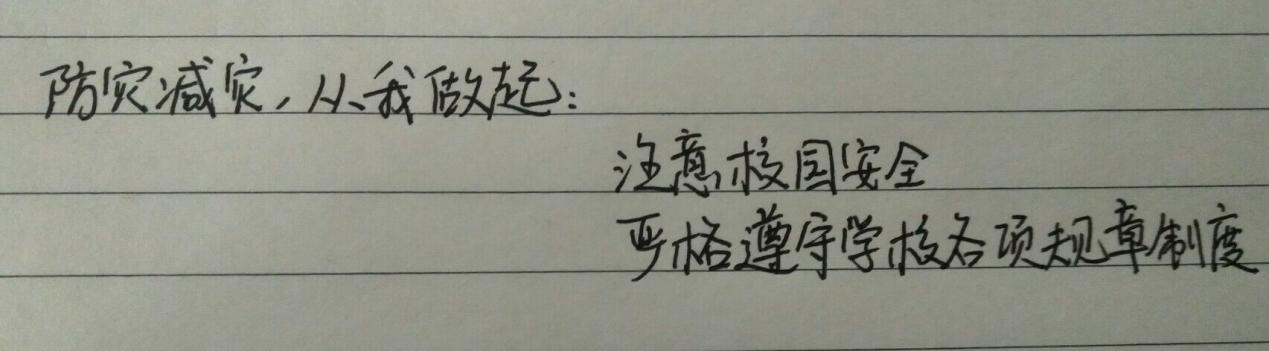 防灾减灾,从我做起:
注意校园安全
严格遵守学校各项规章制度